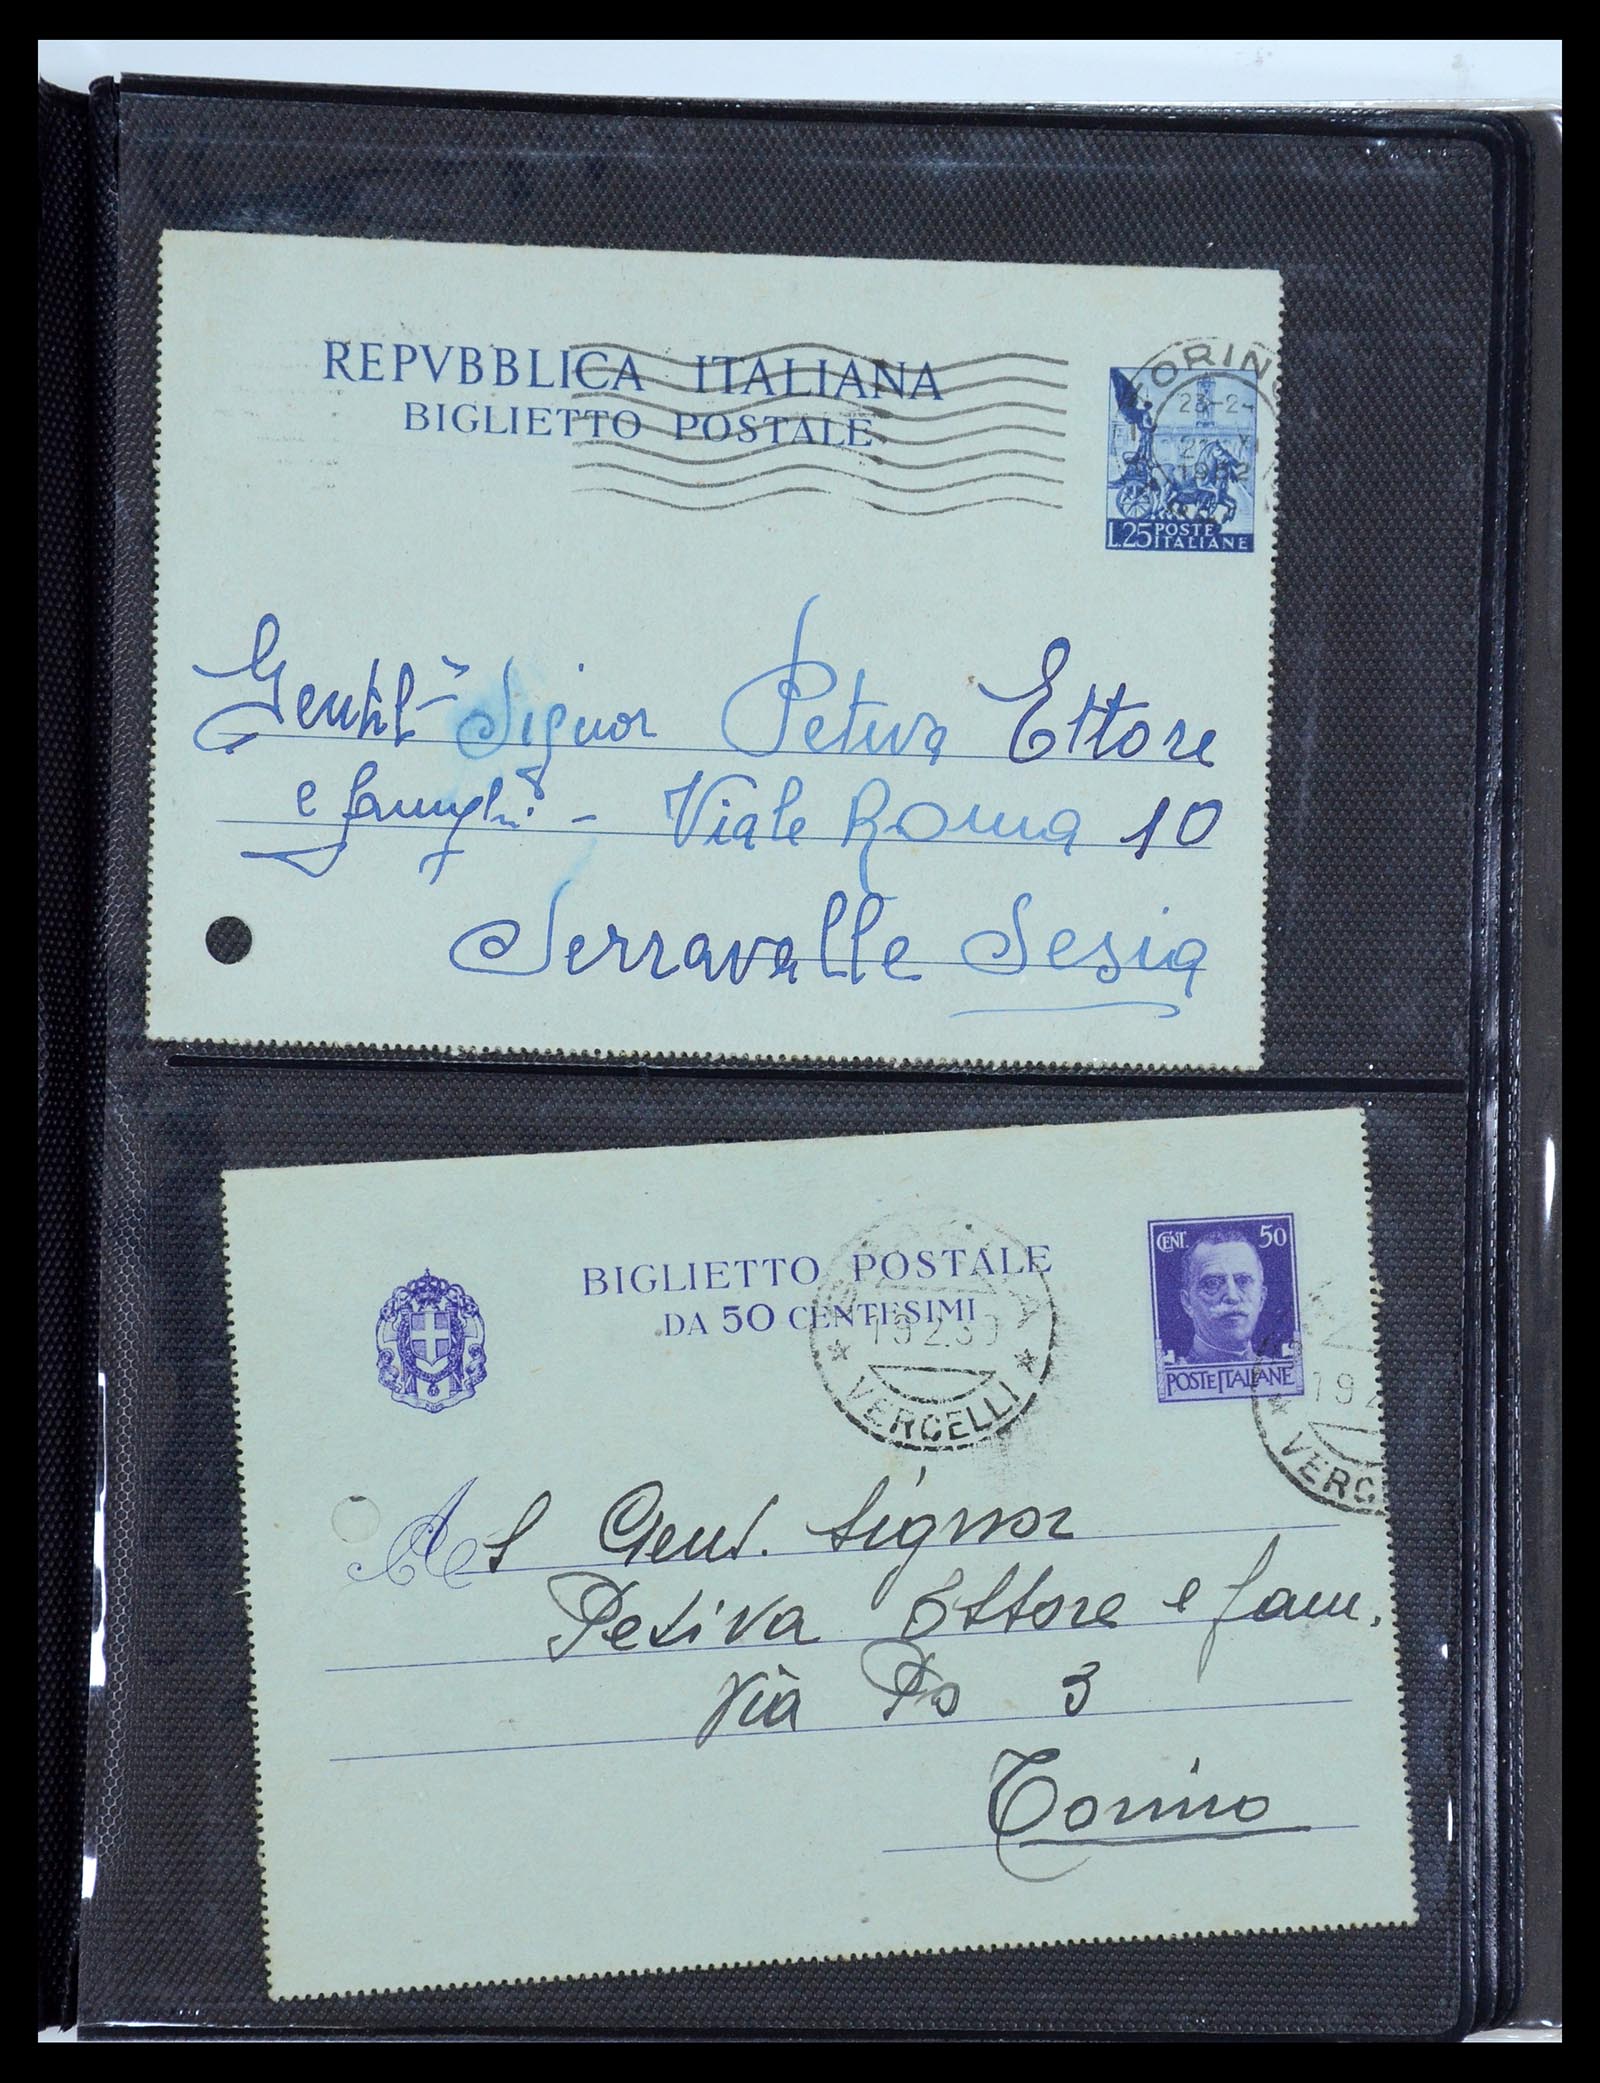 REPVBBLICA ITALIANA
BIGLIETTO POSTALE
TORINO
23-24
1952
L.25 POSTE ITALIANE
Gentil- Signor Petiva Ettore
e famigli. - Viale Roma 10
Serravalle Sesia
BIGLIETTO POSTALE
DA 50 CENTESIMI
19.2.39
VERCELLI
CENT. 50
POSTE ITALIANE
19 2
VERC
Al Gent. Signor
Petiva Ettore e fam.
Via Po 3
Torino